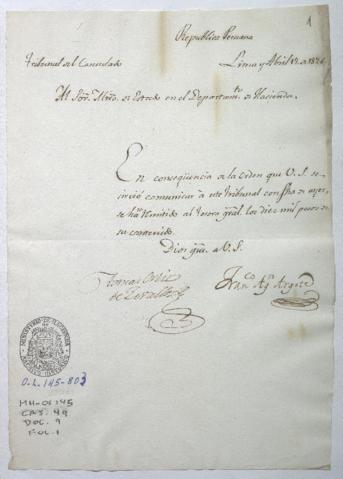 1
Republica Peruana
Tribunal del Consulado
Lima y Abril 12 de 1826
Al Sor. Mtro. de Estado en el Departamto. de Hacienda.
En conseqüencia de la orden que V. S. se
sirvió comunicar á este Tribunal con fha de ayer,
se há remitido al Tesoro gral. los diez mil pesos de
su contenido.
Dios gue. a V. S.
Tomas Ortiz
de Zevallos
Franco. Agn. Argote
MINISTERIO DE HACIENDA
O.L. 145-803
MH-OL145
CAJ. 49
DOC. 9
FOL. 1